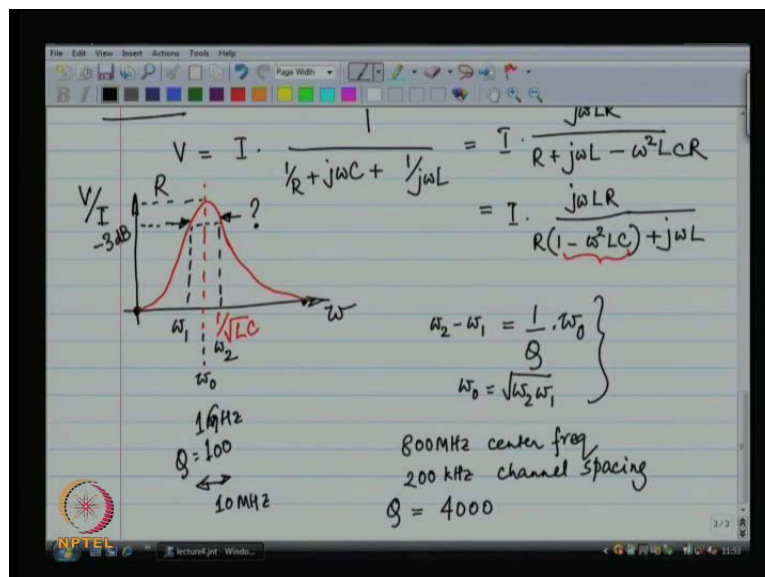 File Edit View Insert Actions Tools Help
Page Width
B I
V = I · 1 / (1/R + jωC + 1/jωL) = I · jωLR / (R + jωL − ω²LCR)
= I · jωLR / (R(1 − ω²LC) + jωL)
V/I
R
−3dB
?
ω
ω₁
1/√LC
ω₂
ω₀
ω₂ − ω₁ = 1/Q · ω₀
ω₀ = √ω₂ω₁
Q = 100
10 MHz
800MHz center freq
200 kHz channel spacing
Q = 4000
3/3
NPTEL
lecture4.jnt - Windo...
11:53